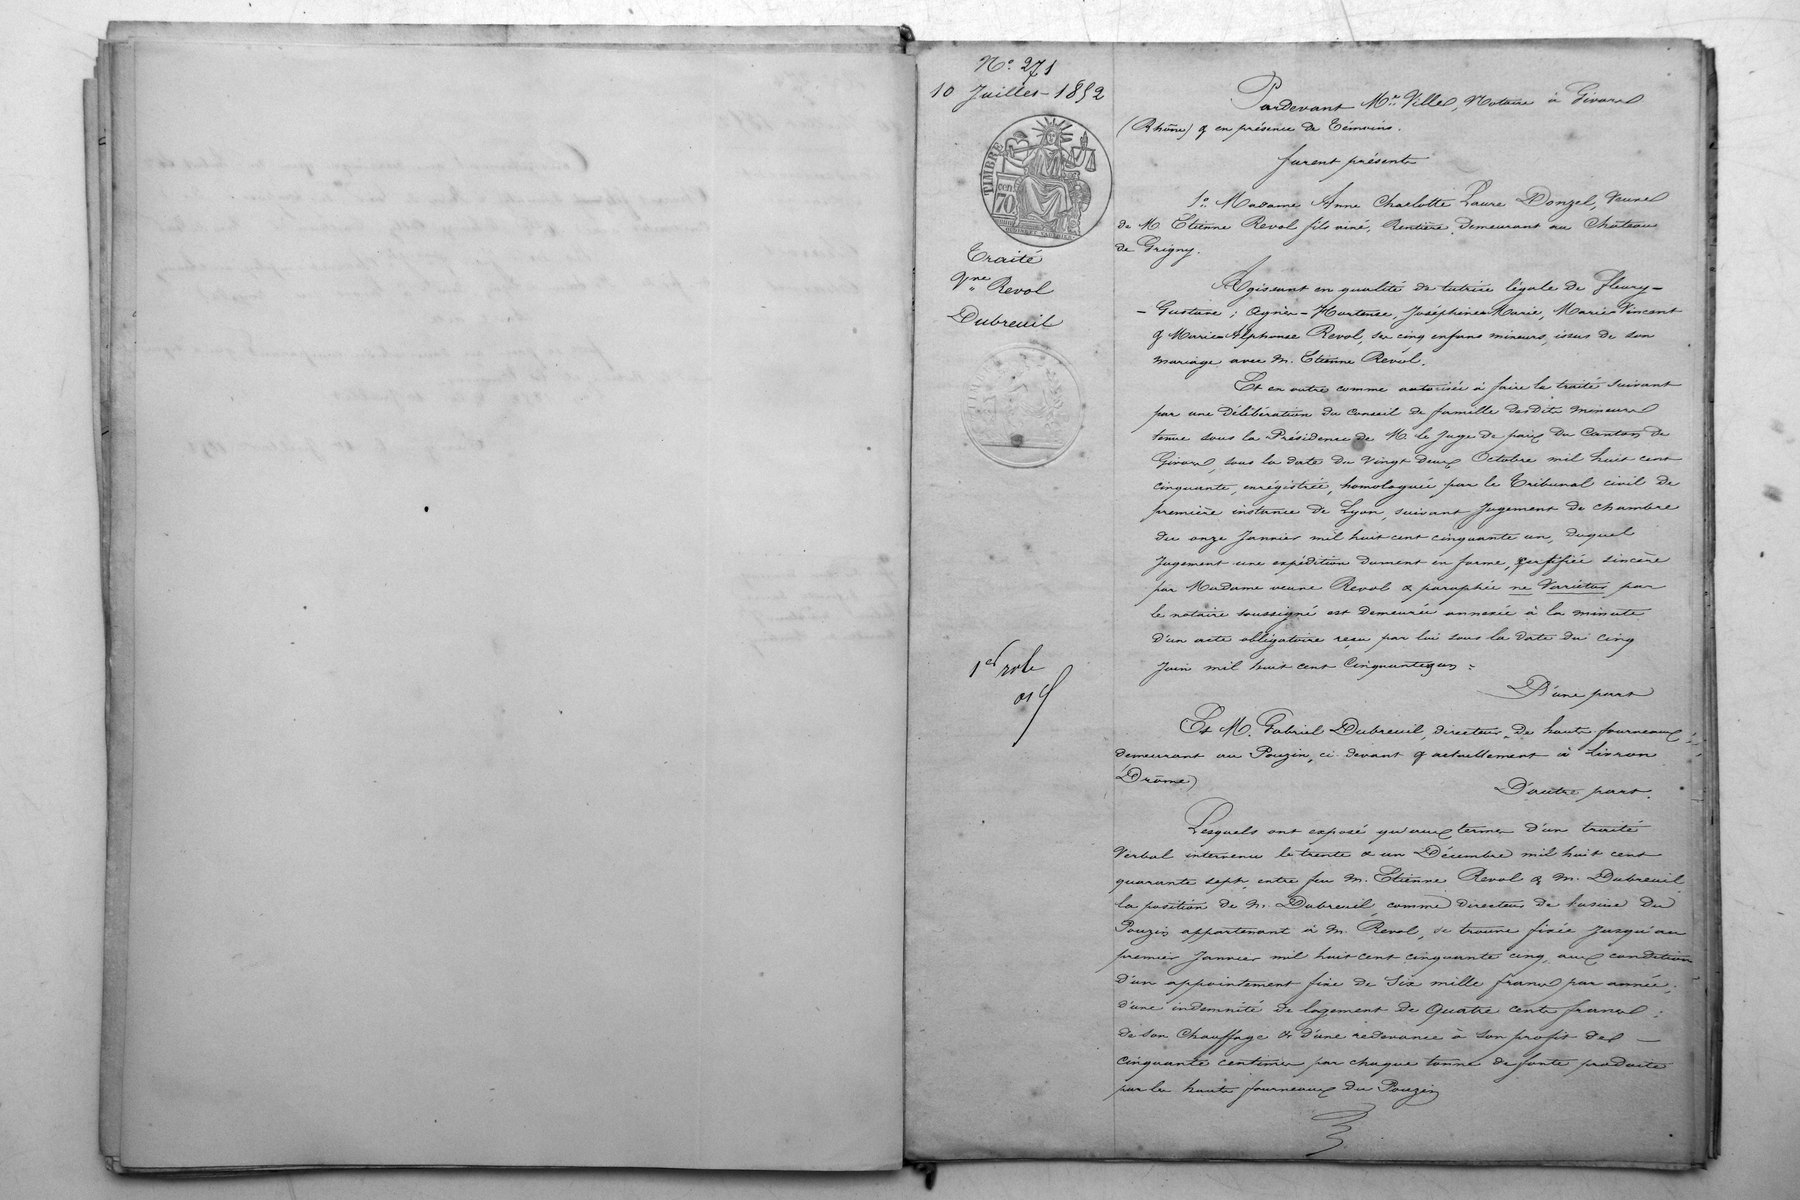 N° 271
10 Juillet 1852
TIMBRE
cen.
70
Traité
Vve Revol
Dubreuil
1er role
Pardevant Me Ville, Notaire à Givors
(Rhône) & en présence de témoins.
furent présents
1° Madame Anne Charlotte Laure Donzel, veuve
de M. Etienne Revol fils ainé, Rentière, demeurant au Château
de Grigny.
Agissant en qualité de tutrice légale de Fleury-
-Gustave; Agnès-Hortense, Joséphine-Marie, Marie-Vincent
& Marie-Alphonse Revol, ses cinq enfans mineurs, issus de son
mariage avec M. Etienne Revol.
Et en outre comme autorisée à faire le traité suivant
par une délibération du Conseil de famille desdits mineurs
tenue sous la Présidence de M. le Juge de paix du Canton de
Givors, sous la date du vingt deux Octobre mil huit cent
cinquante, enrégistrée, homologuée par le Tribunal civil de
première instance de Lyon, suivant Jugement de chambre
du onze Janvier mil huit cent cinquante un, duquel
Jugement une expédition dument en forme, certifiée sincère
par Madame veuve Revol & paraphée ne Varietur par
le notaire soussigné est demeurée annexée à la minute
d'un acte obligatoire reçu par lui sous la date du cinq
Juin mil huit cent cinquante un :
D'une part
Et M. Gabriel Dubreuil, directeur de hauts fourneaux,
demeurant au Pouzin, ci devant & actuellement à Livron
(Drôme)
D'autre part.
Lesquels ont exposé qu'aux termes d'un traité
Verbal intervenu le trente & un Décembre mil huit cent
quarante sept, entre feu M. Etienne Revol & M. Dubreuil,
la position de M. Dubreuil, comme directeur de l'usine du
Pouzin appartenant à M. Revol, se trouve fixée jusqu'au
premier Janvier mil huit cent cinquante cinq, aux conditions
d'un appointement fixe de Six mille francs par année;
d'une indemnité de logement de Quatre cents francs;
de son Chauffage & d'une redevance à son profit de
cinquante centimes par chaque tonne de fonte produite
par les hauts fourneaux du Pouzin